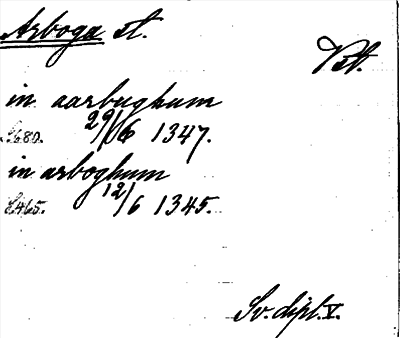 Arboga st.
Vst.
in aarbughum
S. 680. 29/6 1347.
in arboghum
S. 465. 12/6 1345.
Sv. dipl. V.